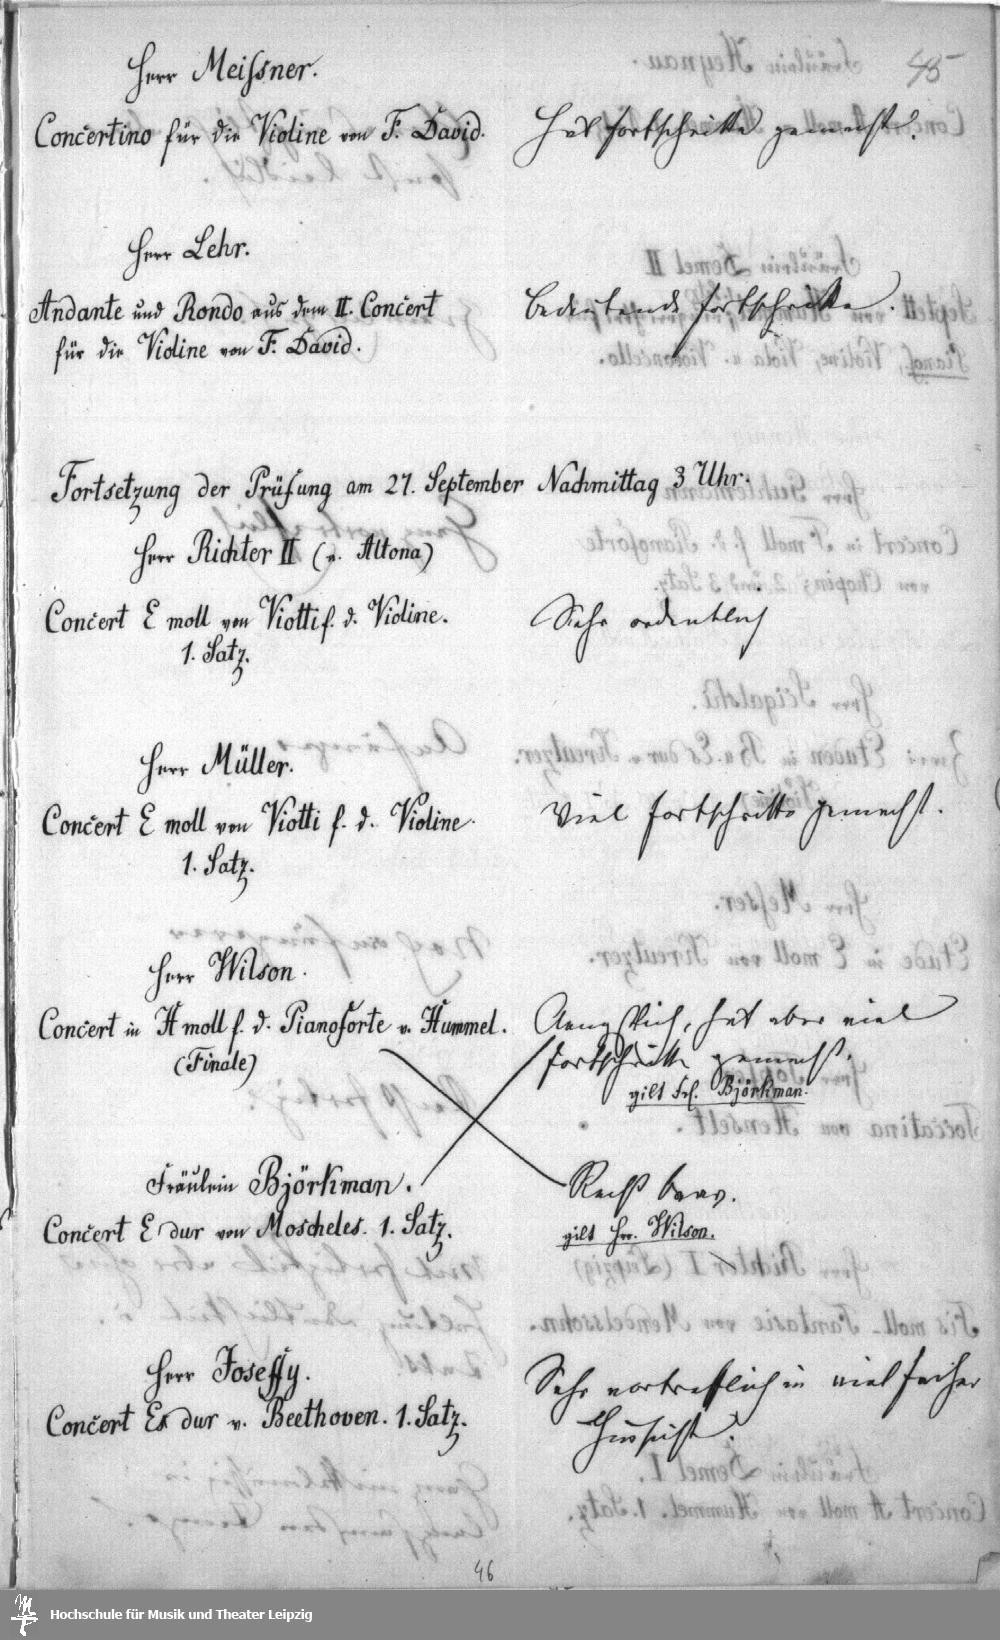 45
Herr Meissner.
Concertino für die Violine von F. David. Hat Fortschritte gemacht.
Herr Lehr.
Andante und Rondo aus dem II. Concert Bedeutende Fortschritte.
für die Violine von F. David.
Fortsetzung der Prüfung am 27. September Nachmittag 3 Uhr.
Herr Richter II (v. Altona)
Concert E moll von Viotti f. d. Violine. Sehr ordentlich
1. Satz.
Herr Müller.
Concert E moll von Viotti f. d. Violine. Viel Fortschritte gemacht.
1. Satz.
Herr Wilson.
Concert in H moll f. d. Pianoforte v. Hummel. Aengstlich, hat aber viel
(Finale) Fortschritte gemacht.
gilt Frl. Björkman.
Fräulein Björkman. Recht brav.
Concert E dur von Moscheles. 1. Satz. gilt Hr. Wilson.
Herr Joseffy. Sehr vortrefflich in vielfacher
Concert Es dur v. Beethoven. 1. Satz. Hinsicht.
46
Hochschule für Musik und Theater Leipzig